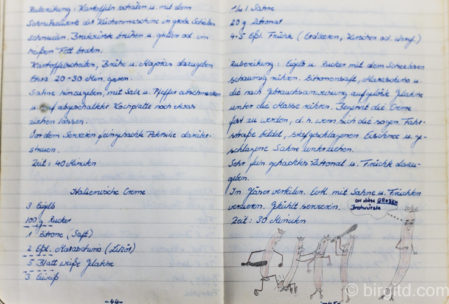 Zubereitung: Kartoffeln schälen u. mit dem
Schneidwerk der Küchenmaschine in große Scheiben
schneiden. Bratwürste brühen u. grillen od. in
heißem Fett braten.
Kartoffelscheiben, Brühe u. Majoran dazugeben
Etwa 20-30 Min. garen.
Sahne hinzugeben, mit Salz u. Pfeffer abschmecken
u. auf abgeschalteter Kochplatte noch etwas
ziehen lassen.
Vor dem Servieren feingehackte Petersilie darüber
streuen.
Zeit: 40 Minuten
Italienische Creme
3 Eigelb
100 g Zucker
1 Zitrone (Saft)
2 Eßl. Maraschino (Likör)
5 Blatt weiße Gelatine
3 Eiweiß
-44-
1/4 l Sahne
20 g Zitronat
4-5 Eßl. Früchte (Erdbeeren, Kirschen od. )
Zubereitung: Eigelb u. Zucker mit dem Schneebesen
schaumig rühren. Zitronensaft, Maraschino u.
die nach Gebrauchsanweisung aufgelöste Gelatine
unter die Masse rühren. Beginnt die Creme
fest zu werden, d.h. wenn sich die sogen. Fahr-
straße bildet, steifgeschlagenen Eischnee u. ge-
schlagene Sahne unterziehen.
Sehr fein gehacktes Zitronat u. Früchte dazu-
geben.
In Gläser verteilen. Evtl. mit Sahne u. Früchten
verzieren. Gekühlt servieren.
Zeit: 30 Minuten
Bratwürste
© birgitd.com